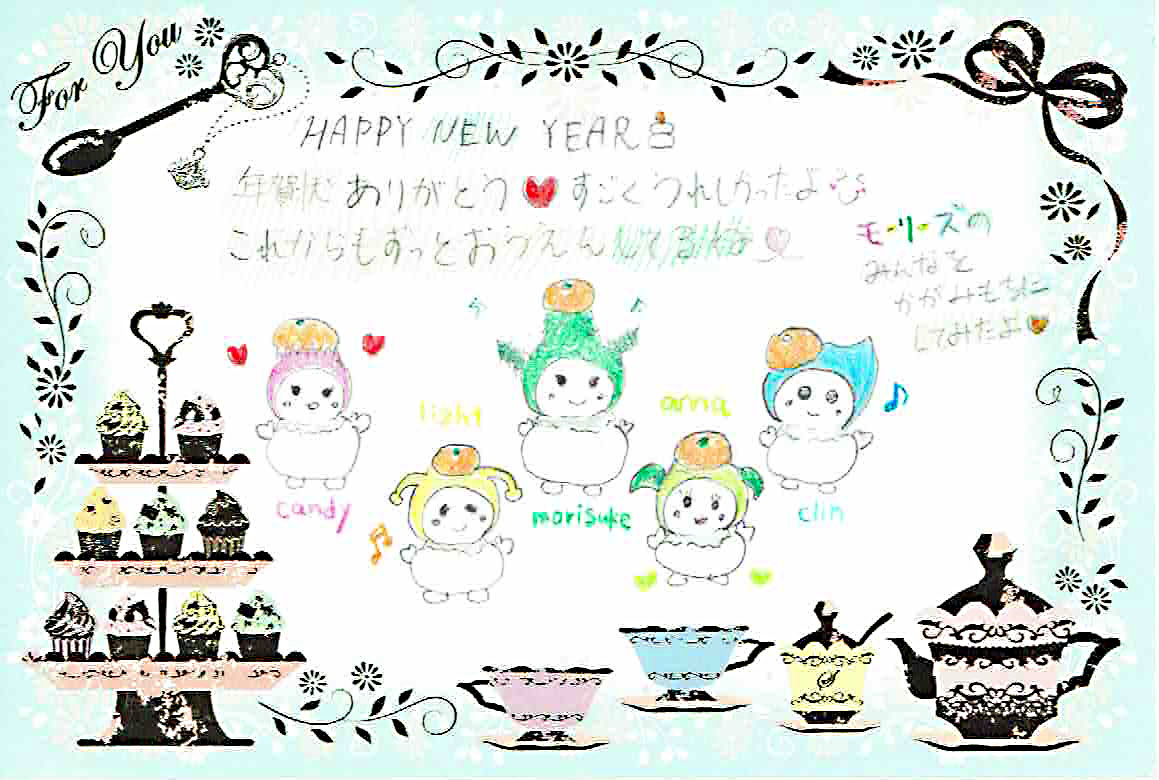 For You
HAPPY NEW YEAR
年賀状ありがとう♥すごくうれしかったよ
これからもずっとおうえん
モーリーズの
みんなを
かがみもちに
してみたよ
light
anna
candy
morisuke
clin